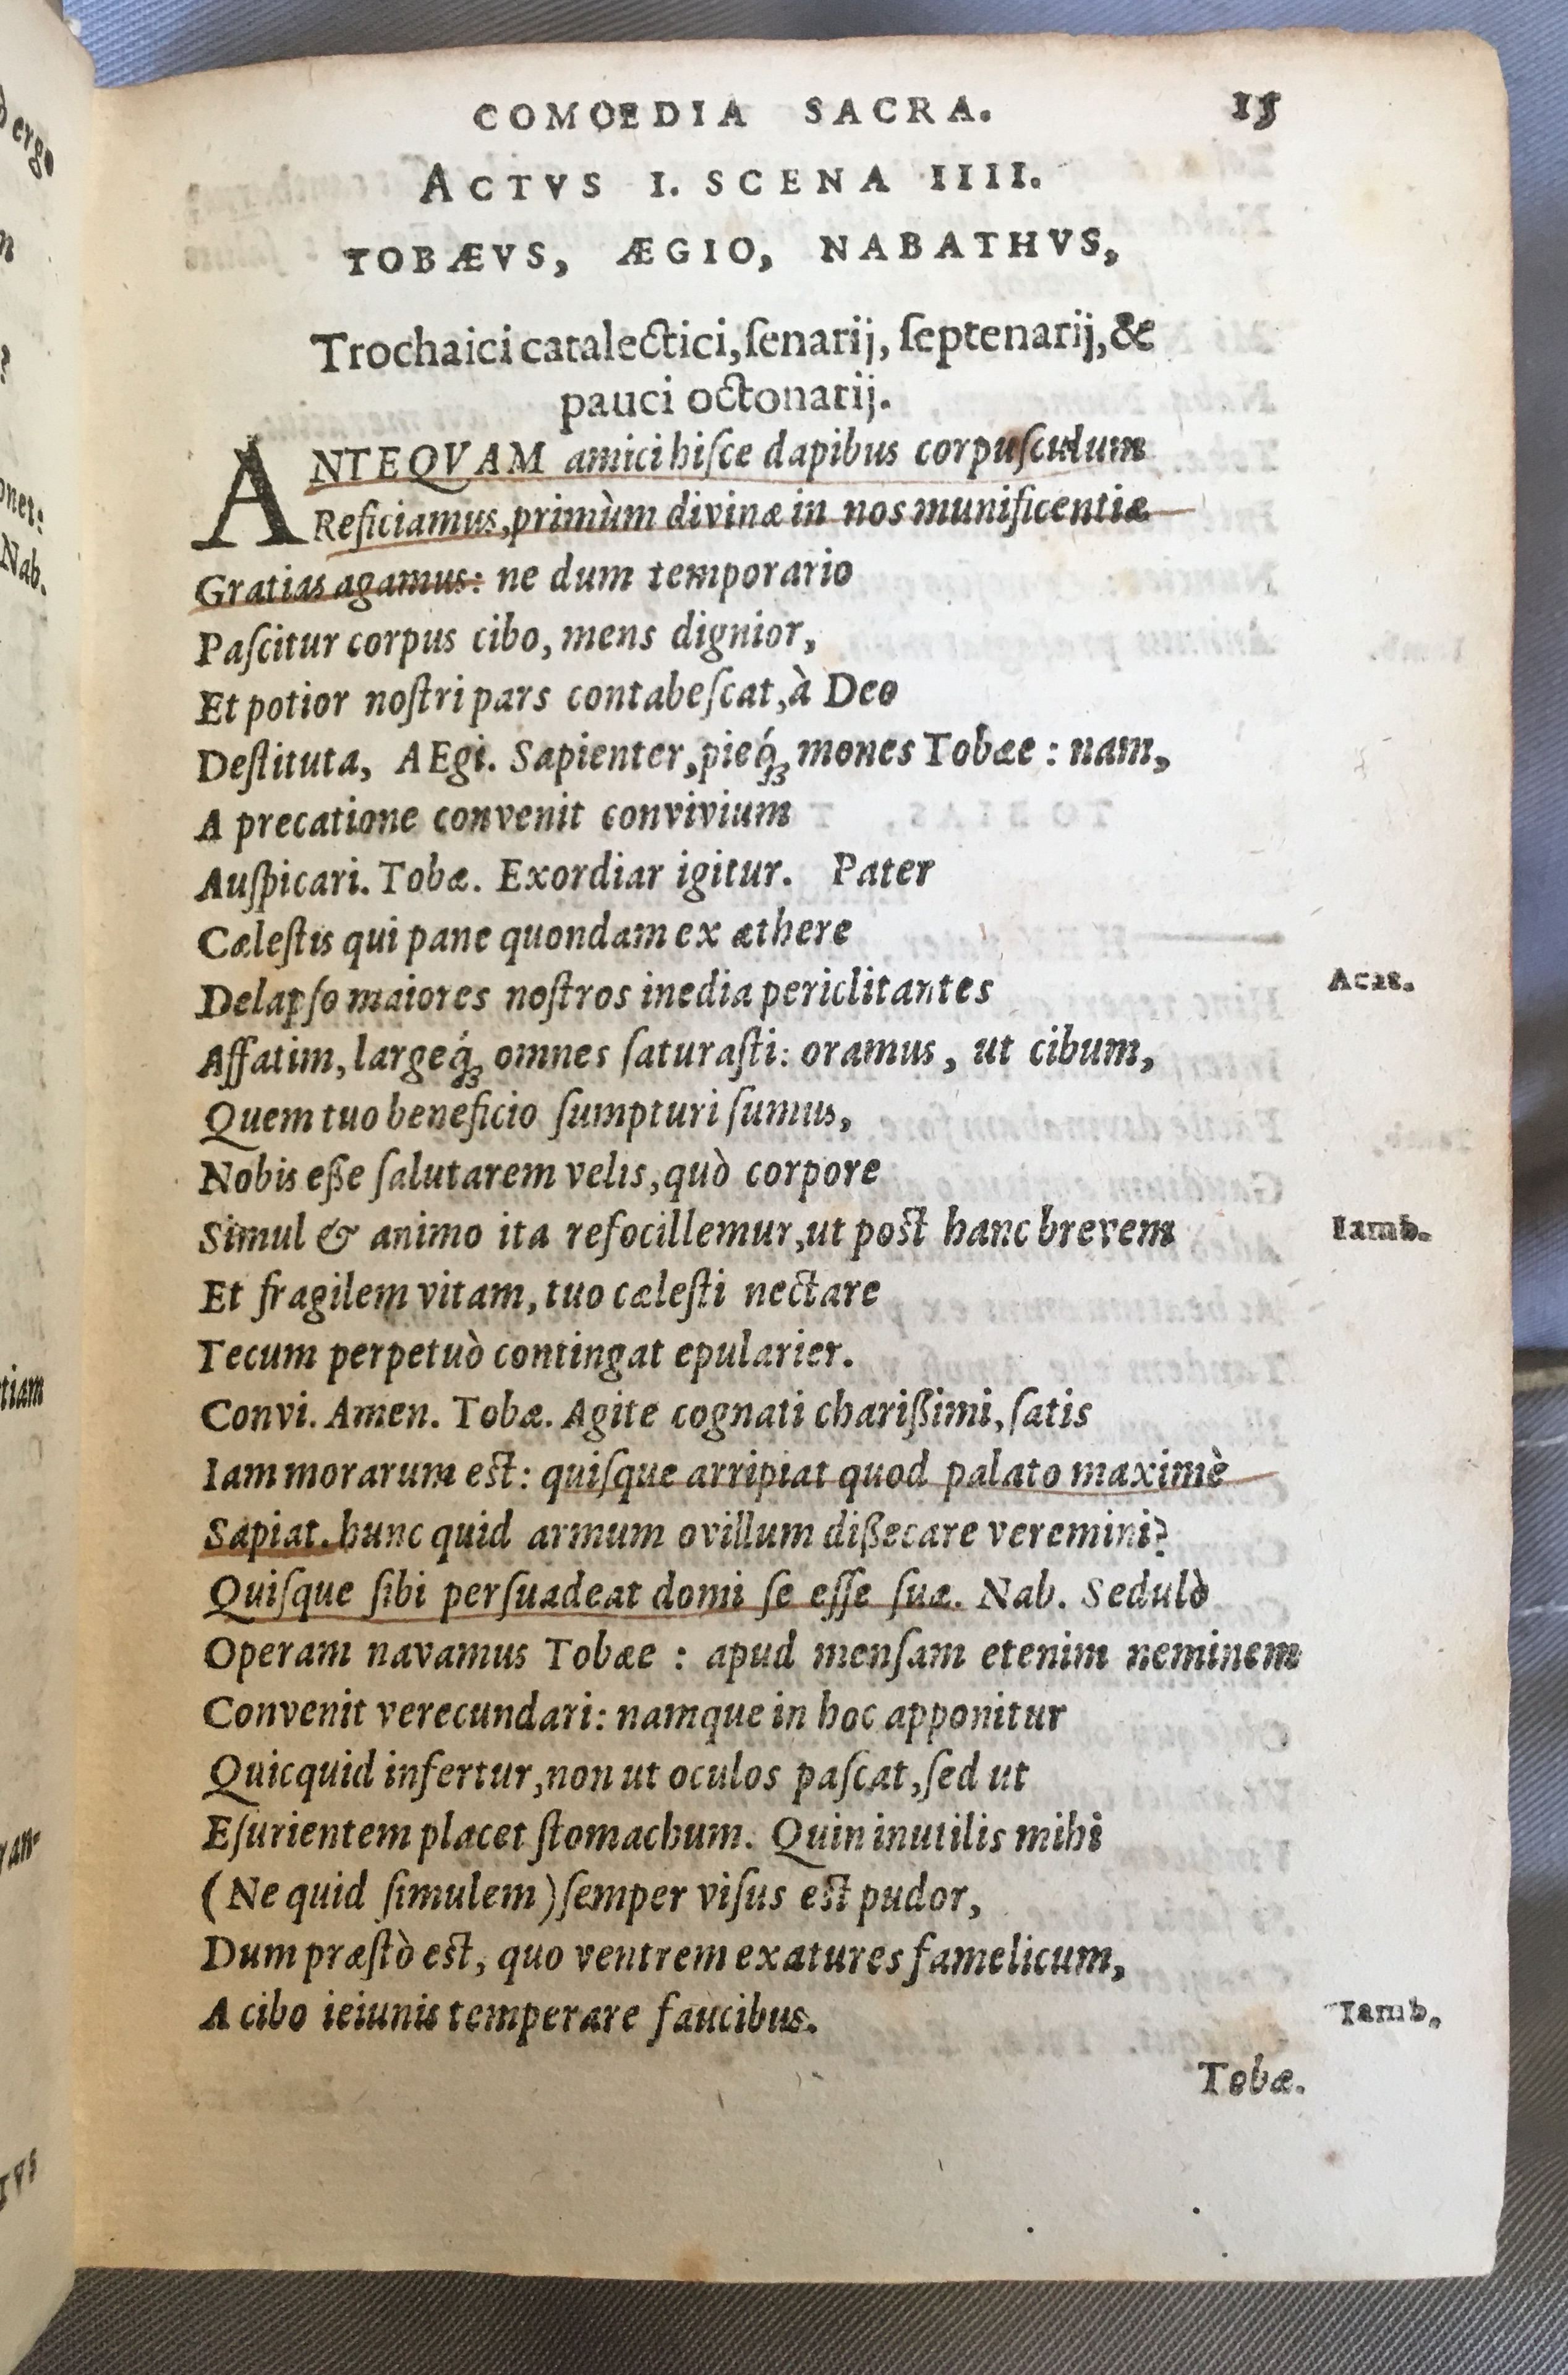 COMOEDIA SACRA. 15
ACTVS I. SCENA IIII.
TOBÆVS, ÆGIO, NABATHVS,
Trochaici catalectici, ſenarij, ſeptenarij, &
pauci octonarij.
ANTEQVAM amici hiſce dapibus corpuſculum
Reficiamus, primùm divinæ in nos munificentiæ
Gratias agamus: ne dum temporario
Paſcitur corpus cibo, mens dignior,
Et potior noſtri pars contabeſcat, à Deo
Deſtituta, AEgi. Sapienter, pieq́ꝫ mones Tobæe : nam,
A precatione convenit convivium
Auſpicari. Tobæ. Exordiar igitur. Pater
Cæleſtis qui pane quondam ex æthere
Delapſo maiores noſtros inedia periclitantes Acat.
Affatim, largeq́ꝫ omnes ſaturaſti: oramus, ut cibum,
Quem tuo beneficio ſumpturi ſumus,
Nobis eſſe ſalutarem velis, quò corpore
Simul & animo ita refocillemur, ut poſt hanc brevem Iamb.
Et fragilem vitam, tuo cæleſti nectare
Tecum perpetuò contingat epularier.
Convi. Amen. Tobæ. Agite cognati chariſſimi, ſatis
Iam morarum eſt: quiſque arripiat quod palato maximè
Sapiat. hunc quid armum ovillum diſſecare veremini?
Quiſque ſibi perſuadeat domi ſe eſſe ſuæ. Nab. Sedulò
Operam navamus Tobæe : apud menſam etenim neminem
Convenit verecundari: namque in hoc apponitur
Quicquid infertur, non ut oculos paſcat, ſed ut
Eſurientem placet ſtomachum. Quin inutilis mihi
(Ne quid ſimulem) ſemper viſus eſt pudor,
Dum præſtò eſt, quo ventrem exatures famelicum,
A cibo ieiunis temperare faucibus. Iamb.
Tobæ.